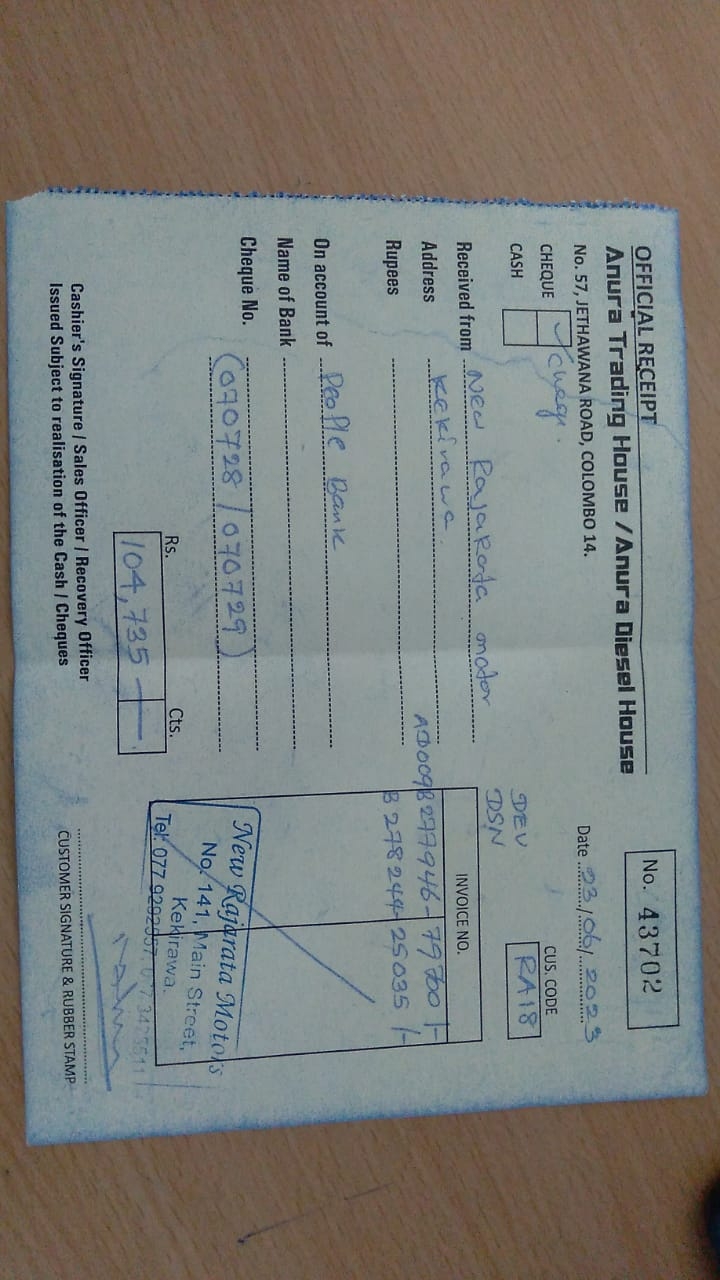 OFFICIAL RECEIPT
Anura Trading House / Anura Diesel House
No. 57, JETHAWANA ROAD, COLOMBO 14.
No. 43702
Date 23/06/2023
CHEQUE ✓ cheq.
CASH
CUS. CODE
RA18
DEV
DSN
Received from New Rajarata motor
Address Kekirawa.
Rupees
INVOICE NO.
AD009B277946 - 79700/-
B278244 - 25035/-
On account of People Bank
Name of Bank
Cheque No. (070728 / 070729)
Rs. Cts.
104,735 —
New Rajarata Motors
No. 141, Main Street,
Kekirawa.
Tel: 077 9292057
Cashier's Signature / Sales Officer / Recovery Officer
Issued Subject to realisation of the Cash / Cheques
CUSTOMER SIGNATURE & RUBBER STAMP